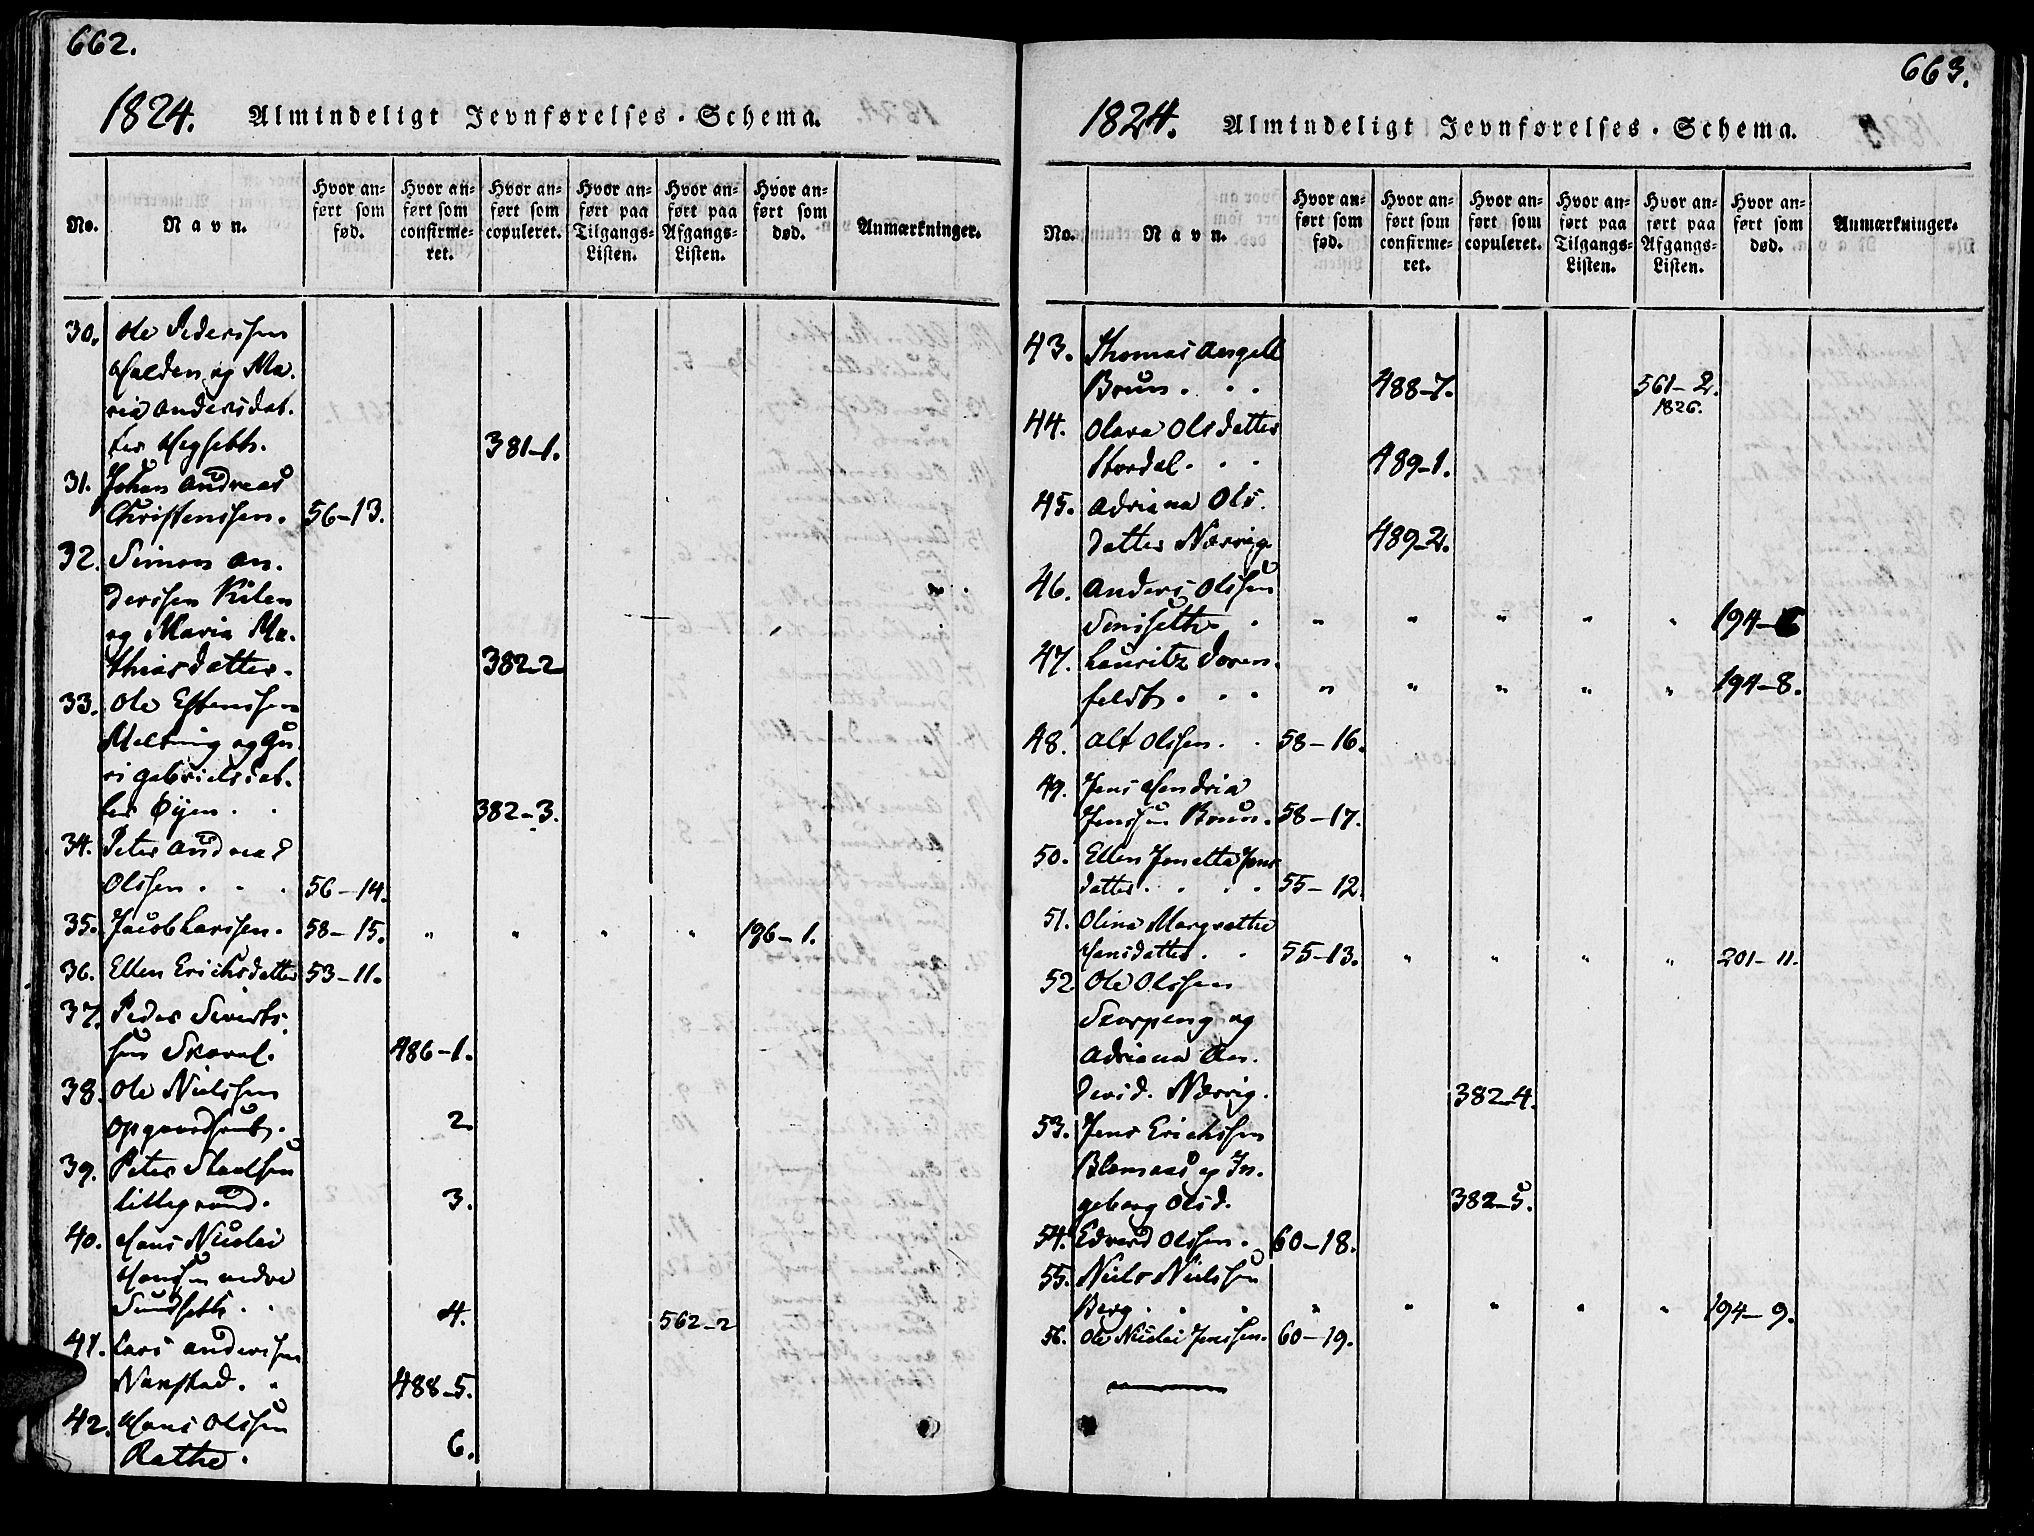 662.
1824. Almindeligt Jevnførelses-Schema.
No. Navn. Hvor anført som fød. Hvor anført som confirmeret. Hvor anført som copuleret. Hvor anført paa Tilgangs-Listen. Hvor anført paa Afgangs-Listen. Hvor anført som død. Anmærkninger.
30. Ole Pederssen
Halden og Ma-
ria Andersdat-
ter Megseth. 381-1.
31. Johan Andreas
Christenssen. 56-13.
32. Simon An-
derssen Kilen
og Maria Ma-
thiasdatter. 382-2
33. Ole Estenssen
Meltving og Gu-
ri Gabrielsdat-
ter Öyen. . 382-3.
34. Peter Andreas
Olssen. . . 56-14.
35. Jacob Larssen. 58-15. " " " " 196-1.
36. Ellen Erichsdatter 53-11.
37. Peder Siverts-
sen Skaral. 486-1.
38. Ole Nielssen
2.
39. Peter
Lillegrund. 3.
40. Hans Nicolai
Hanssen nedre
Sundseth. . 4. 562-2
41. Lars Anderssen
Nanstad. . 488-5.
42. Hans Olssen
Rathe. 6.
663.
1824. Almindeligt Jevnførelses-Schema.
No. Navn. Hvor anført som fød. Hvor anført som confirmeret. Hvor anført som copuleret. Hvor anført paa Tilgangs-Listen. Hvor anført paa Afgangs-Listen. Hvor anført som død. Anmærkninger.
43. Thomas Angell
Bruun. . . 488-7. 561-2.
1826.
44. Olava Olsdatter
Stordal. . . 489-1.
45. Adriana Ols-
datter Nervig. 489-2.
46. Anders Olssen
" " " " " 194-6
47. Lauritz Doren-
feldt. . . " " " " " 194-8.
48. Alt Olssen. . 58-16.
49. Jens Hendric
Jenssen Bruun. 58-17.
50. Ellen Jonetta Jens-
datter. . . . 55-12.
51. Olina Margrethe
Hansdatter. . 55-13. " " " " 201-11.
52 Ole Olssen
Skorpeng og
Adriana An-
dersd. Nervig. 382-4.
53. Jens Erichssen
Blomaas og In-
geborg Olsd. 382-5.
54. Edvard Olssen. 60-18.
55. Niels Nielssen
Berg. . . " " " " " 194-9.
56. Ole Nicolai Jenssen. 60-19.